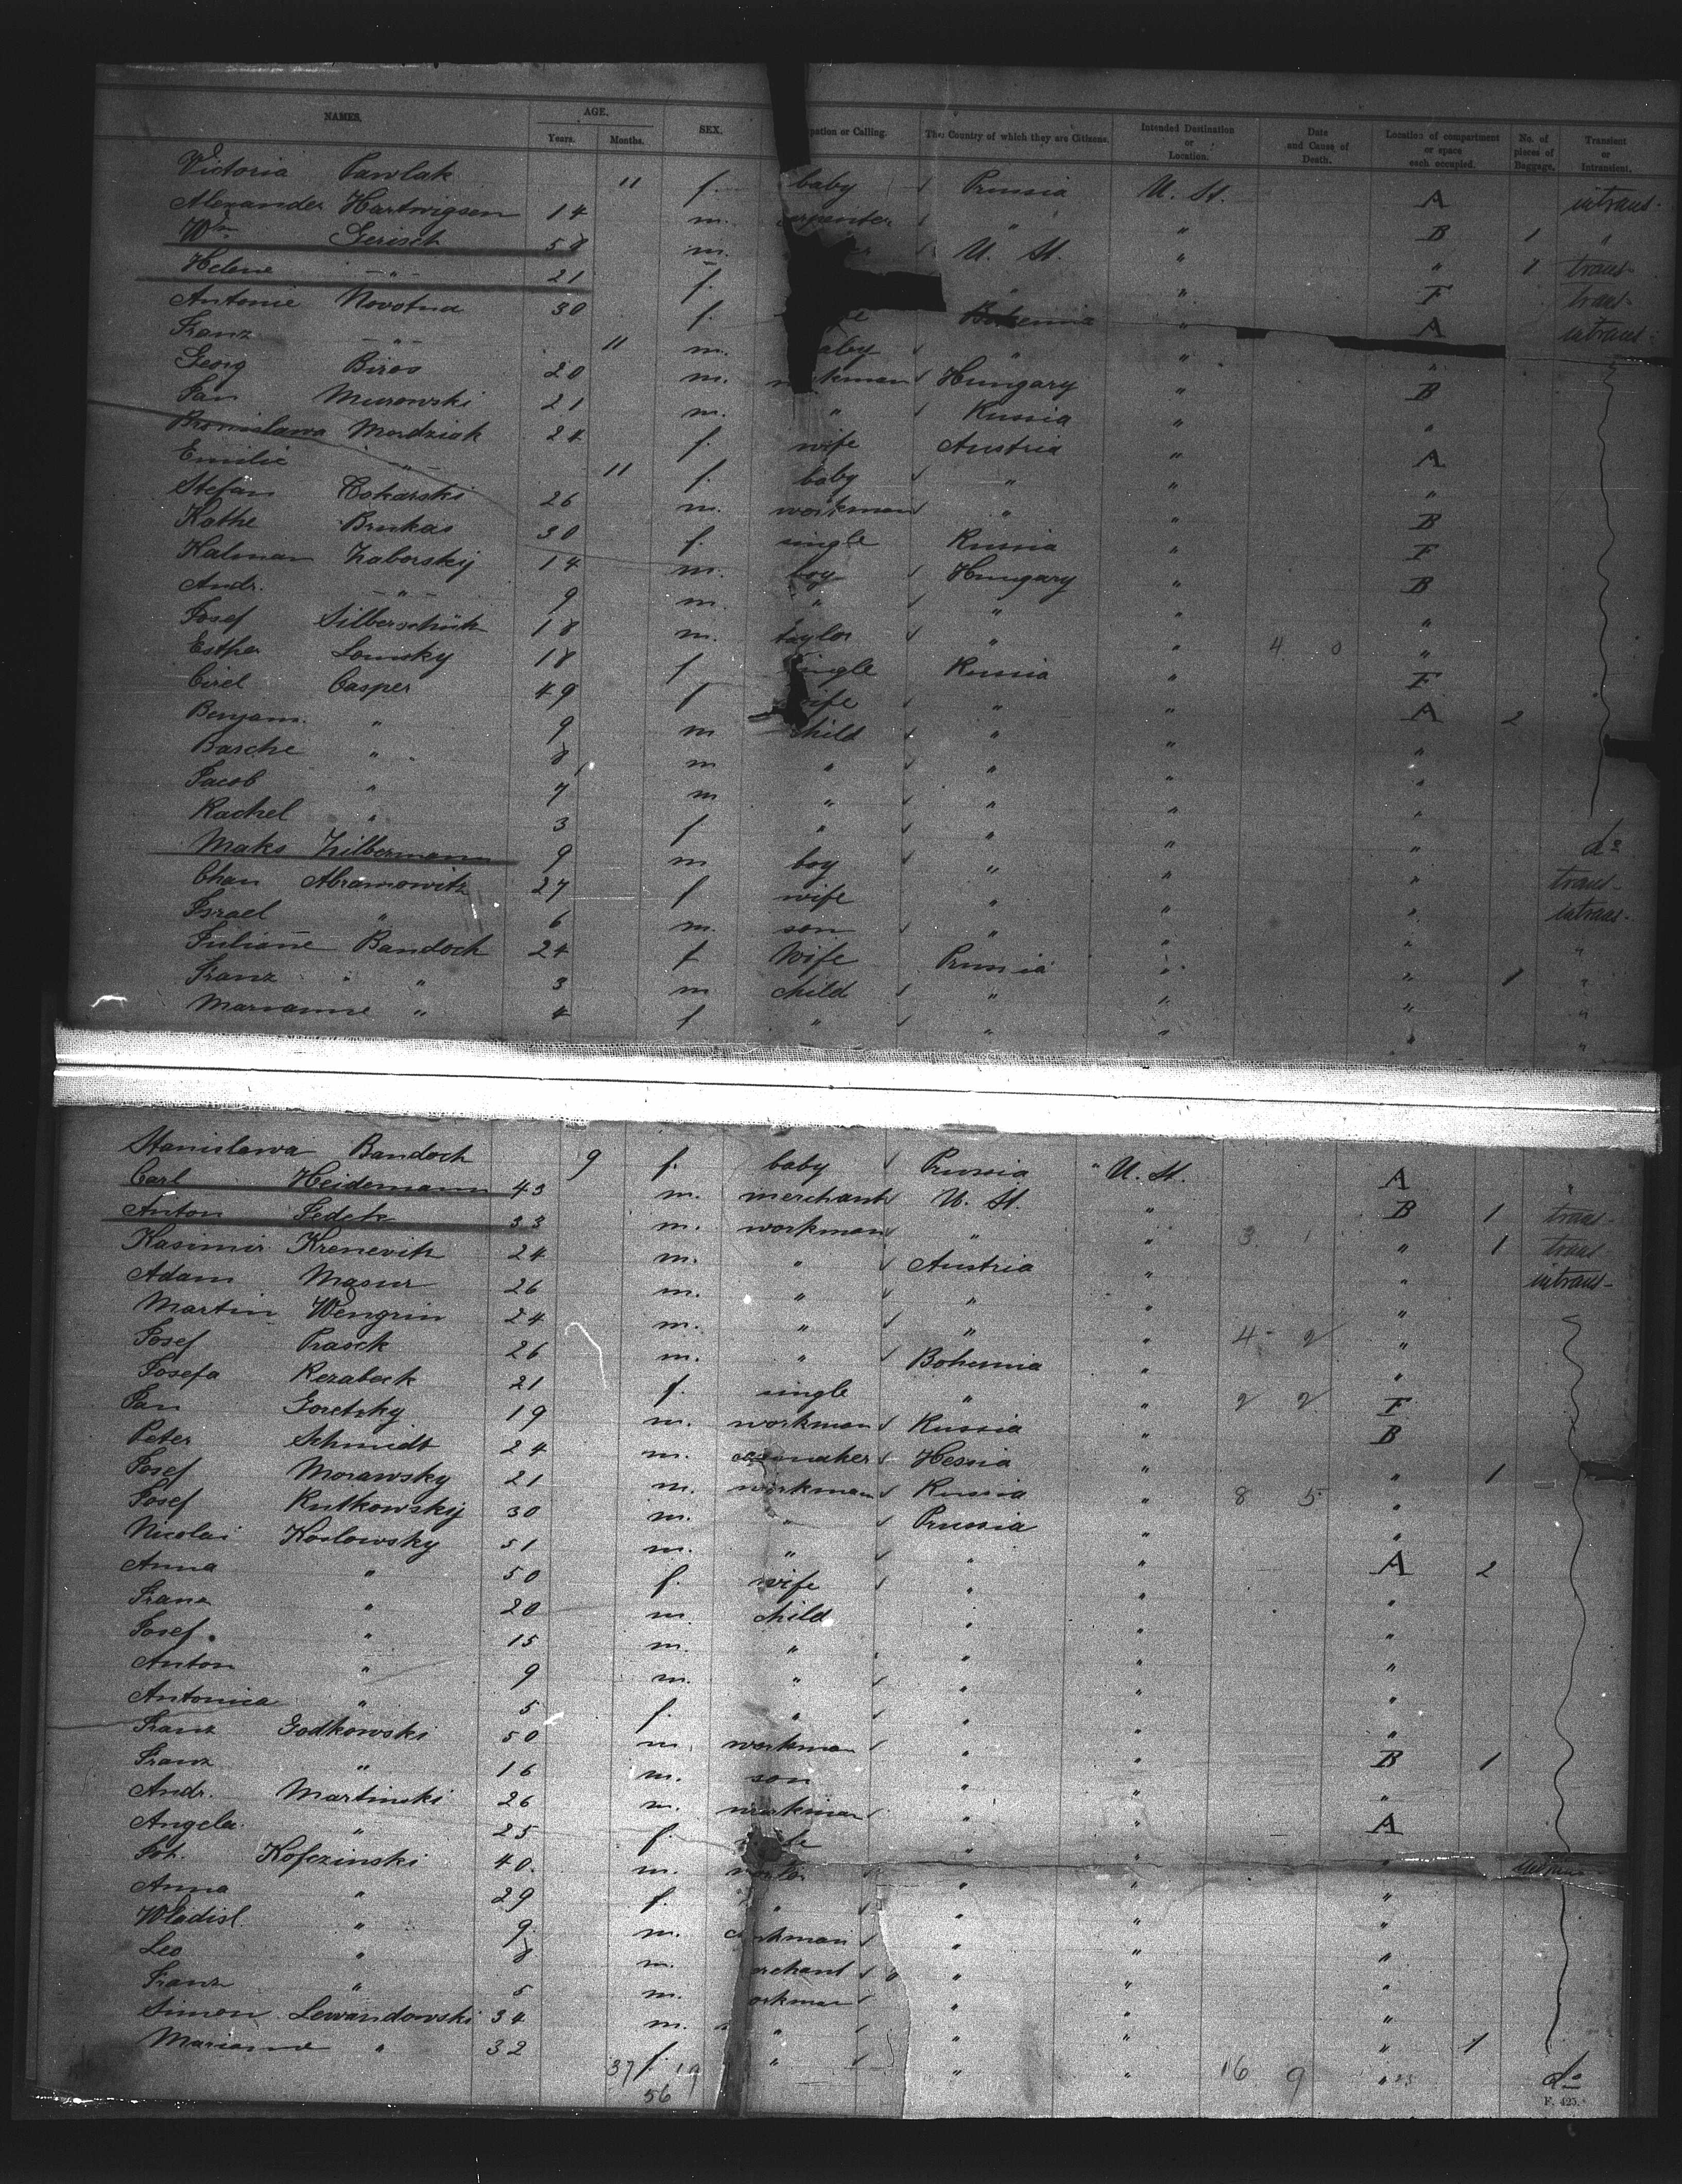 NAMES. AGE. Years. Months. SEX. pation or Calling. The Country of which they are Citizens. Intended Destination or Location. Date and Cause of Death. Location of compartment or space each occupied. No. of pieces of Baggage. Transient or Intransient.
Victoria Pawlak 11 f. baby Prussia U. St. A intrans.
Alexander Hartwigsen 14 m. arpenter " " B 1 "
Wm Gerisch 58 m. U. St. " " 1 trans-
Helene -"- 21 f. " " F trans-
Antonie Novotna 30 f. Bohemia " A intrans-
Franz -"- 11 m. aby " " "
Georg Biros 20 m. workman Hungary " B
Jan Murowski 21 m. " Russia " "
Bronislawa Mordziak 24 f. wife Austria " A
Emilie -"- 11 f. baby " " "
Stefan Cokarski 26 m. workman " " B
Kathe Brukas 30 f. single Russia " F
Kalman Zaborsky 14 m. boy Hungary " B
Andr. -"- 9 m. " " " "
Josef Silberschütz 18 m. taylor " " 4 0 "
Esther Lomsky 18 f single Russia " F
Cirel Casper 49 f wife " " A 2
Benjam. " 9 m child " " "
Basche " 8 m " " " "
Jacob " 7 m " " " "
Rachel " 3 f " " " " do
Maks Zilbermann 9 m boy " " " trans-
Chan Abramowitz 27 f wife " " " intrans-
Israel " 6 m. son " " " "
Juliane Bandoch 24 f Wife Prussia " " 1 "
Franz " 3 m child " " " "
Marianne " 4 f " " " " "
Stanislawa Bandoch 9 f. baby Prussia " U. St. A "
Carl Heidemann 43 m. merchant U. St. " B 1 trans-
Anton Sedek 33 m. workman " " 3 1 " 1 trans
Kasimir Krenevitz 24 m. " Austria " " intrans-
Adam Masur 26 m. " " " "
Martin Wengrin 24 m. " " " 4- 2 "
Josef Prasek 26 m. " Bohemia " "
Josefa Rezabeck 21 f. single " " 2 2 F
Jan Goretzky 19 m. workman Russia " B
Peter Schmidt 24 m. maker Hessia " " 1
Josef Morawsky 21 m. workman Russia " 8 5 "
Josef Rutkowsky 30 m. " Prussia " "
Nicolai Koslowsky 51 m. " " " A 2
Anna " 50 f. wife " " "
Franz " 20 m. child " " "
Josef " 15 m. " " " "
Anton " 9 m. " " " "
Antonia " 5 f. " " " "
Franz Godkowski 50 m. workman " " B 1
Franz " 16 m. son " " "
Andr. Martinski 26 m. workman " " A
Angela " 25 f. " " "
Joh. Kofczinski 40 m. " " "
Anna " 29 f. " " " "
Wladisl. " 9 m. rkman " " "
Leo " 8 m. erchant " " "
Franz " 5 m. orkman " " "
Simon Lewandowski 34 m. " " " " 1
Marianne " 32 f. " " " " do
37 19 16 9
56
F. 425.